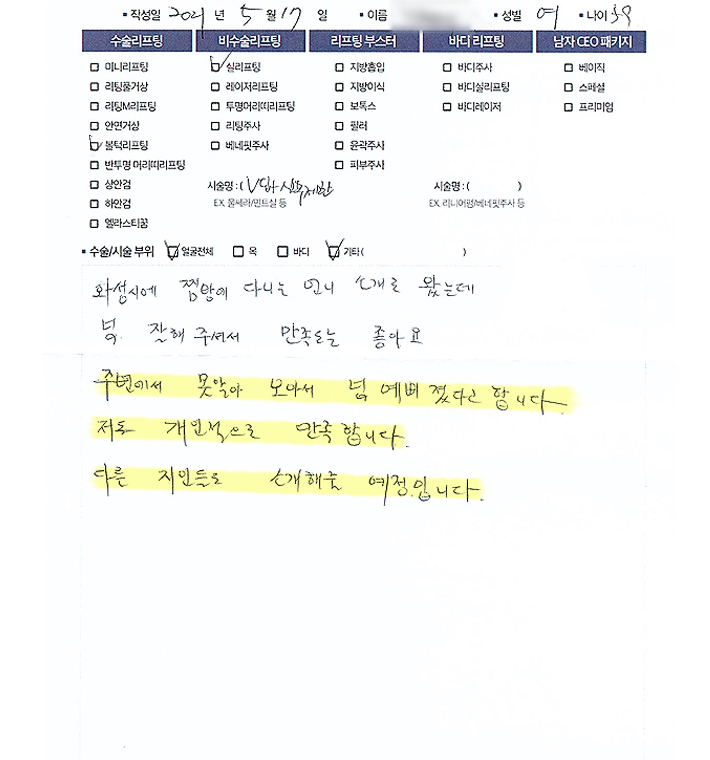 ▪ 작성일 2021 년 5 월 17 일 ▪ 이름 ▪ 성별 여 ▪ 나이
수술리프팅 비수술리프팅 리프팅 부스터 바디 리프팅 남자 CEO 패키지
미니리프팅 실리프팅 지방흡입 바디주사 베이직
리팅풀거상 레이저리프팅 지방이식 바디실리프팅 스페셜
리팅M리프팅 투명머리띠리프팅 보톡스 바디레이저 프리미엄
안면거상 리팅주사 필러
볼턱리프팅 베네핏주사 윤곽주사
반투명 머리띠리프팅 피부주사
상안검 시술명 : ( ) 시술명 : ( )
하안검 EX. 울세라/민트실 등 EX. 리니어펌/베네핏주사 등
엘라스티꿈
▪ 수술/시술 부위 얼굴전체 목 바디 기타 ( )
화성시에 찜방에 다니는 언니 소개로 왔는데
넘 잘해 주셔서 만족도는 좋아요
주변에서 못알아 보아서 넘 예뻐졌다고 합니다.
저도 개인적으로 만족합니다.
다른 지인들도 소개해줄 예정입니다.